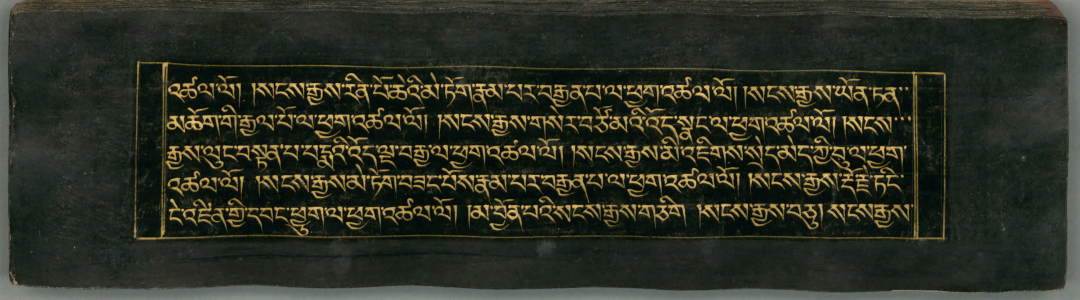 འཚལ་ལོ། །སངས་རྒྱས་རིན་པོ་ཆེའི་མེ་ཏོག་རྣམ་པར་བརྒྱན་པ་ལ་ཕྱག་འཚལ་ལོ། །སངས་རྒྱས་ཡོན་ཏན་་
མཆོག་གི་རྒྱལ་པོ་ལ་ཕྱག་འཚལ་ལོ། །སངས་རྒྱས་གསར་བཙོ་མའི་འོད་སྣང་ལ་ཕྱག་འཚལ་ལོ། །སངས་་་
རྒྱས་ལུང་བསྟན་པ་པདྨའི་འོད་ལྔ་བརྒྱ་ལ་ཕྱག་འཚལ་ལོ། །སངས་རྒྱས་མི་འཇིགས་སྲེད་མེད་ཀྱི་བུ་ལ་ཕྱག་
འཚལ་ལོ། །སངས་རྒྱས་མེ་ཏོག་བཟང་པོས་རྣམ་པར་བརྒྱན་པ་ལ་ཕྱག་འཚལ་ལོ། །སངས་རྒྱས་རྡོ་རྗེ་ཏིང་
ངེ་འཛིན་གྱི་དབང་ཕྱུག་ལ་ཕྱག་འཚལ་ལོ། །མ་བྱོན་པའི་སངས་རྒྱས་གཅིག །སངས་རྒྱས་བཅུ། སངས་རྒྱས་